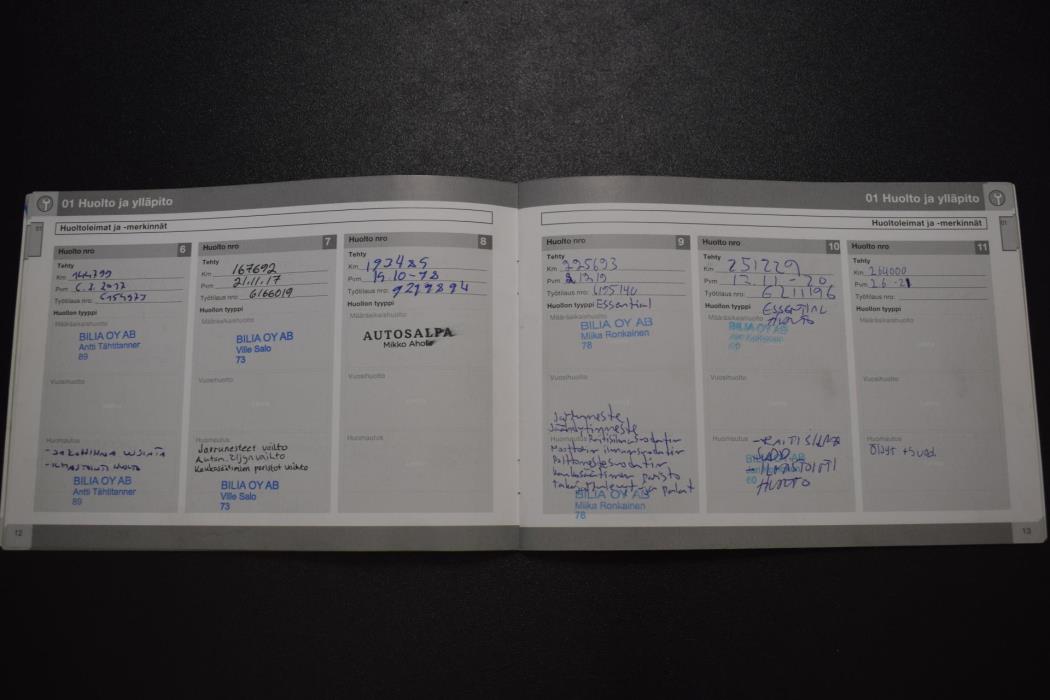 01 Huolto ja ylläpito
Huoltoleimat ja -merkinnät
01
Huolto nro 6
Tehty
Km 144799
Pvm 6.2.2017
Työtilaus nro:
Huollon tyyppi
Määräaikaishuolto
BILIA OY AB
Antti Tähtitanner
89
Vuosihuolto
Huomautus
BILIA OY AB
Antti Tähtitanner
89
Huolto nro 7
Tehty
Km 167692
Pvm 21.11.17
Työtilaus nro: 6166019
Huollon tyyppi
Määräaikaishuolto
BILIA OY AB
Ville Salo
73
Vuosihuolto
Huomautus
Jarrunesteet vaihto
Auton. öljyn vaihto
Kaukosäätimien paristot vaihto
BILIA OY AB
Ville Salo
73
Huolto nro 8
Tehty
Km 193485
Pvm 19.10-18
Työtilaus nro: 9219894
Huollon tyyppi
Määräaikaishuolto
AUTOSALPA
Mikko Ahola
Vuosihuolto
Huomautus
12
01 Huolto ja ylläpito
Huoltoleimat ja -merkinnät
01
Huolto nro 9
Tehty
Km 225693
Pvm
Työtilaus nro: 6195140
Huollon tyyppi Essential
Määräaikaishuolto
BILIA OY AB
Miika Ronkainen
78
Vuosihuolto
Jarruneste
Jäähdytinneste
Huomautus Raitisilmasuodatin
Moottorin ilmansuodatin
Polttoainesuodatin
kaukosäätimen paristo
takajarrulevyt ja palat
BILIA OY AB
Miika Ronkainen
78
Huolto nro 10
Tehty
Km 251229
Pvm 12.11-20
Työtilaus nro: 6211196
Huollon tyyppi ESSENTIAL
Määräaikaishuolto HUOLTO
BILIA OY AB
60
Vuosihuolto
Huomautus
- RAITISILMA
SUOD
- ILMASTOINTI
HUOLTO
60
Huolto nro 11
Tehty
Km 264000
Pvm 2.6.21
Työtilaus nro:
Huollon tyyppi
Määräaikaishuolto
Vuosihuolto
Huomautus
Öljyt + suod.
13